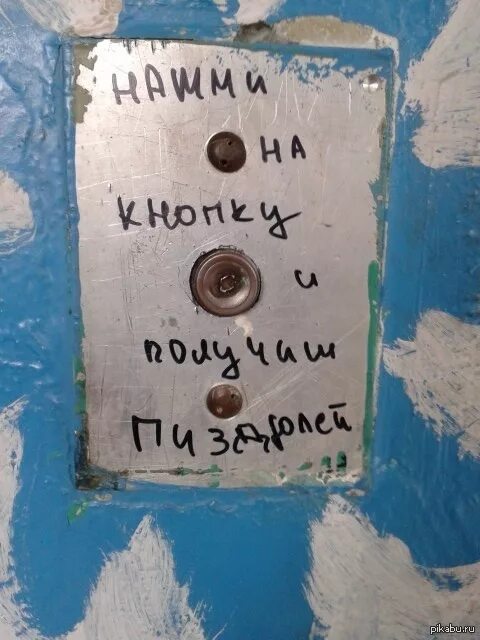 НАЖМИ
НА
КНОПКУ
И
ПОЛУЧИШ
ПИЗДЮЛЕЙ
pikabu.ru